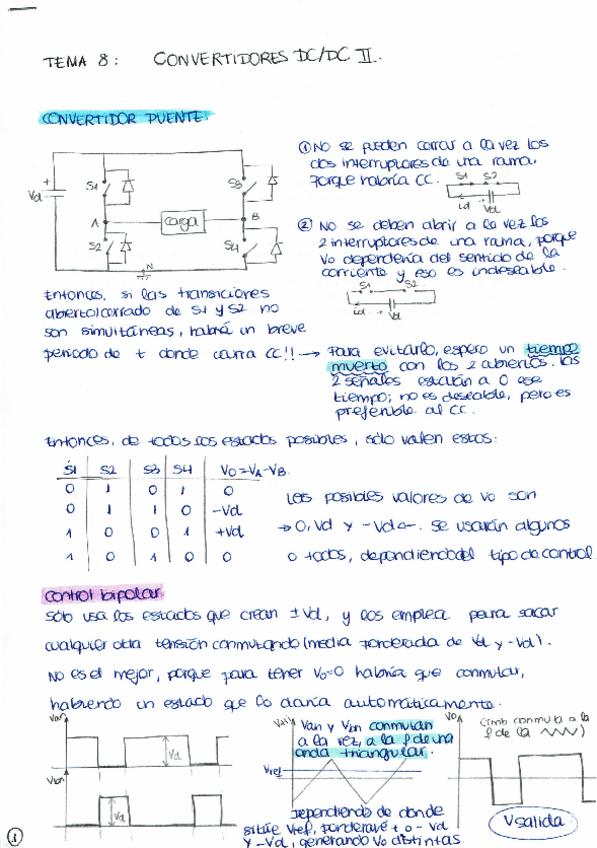 TEMA 8: CONVERTIDORES DC/DC II.
CONVERTIDOR PUENTE.
① No se pueden cerrar a la vez los
dos interruptores de una rama,
porque habría CC.
S1 S2
id Vd
+
Vd
S1
S3
A
carga
B
S2
S4
N
② No se deben abrir a la vez los
2 interruptores de una rama, porque
Vo dependería del sentido de la
corriente y eso es indeseable.
S1 S2
id + Vd
Entonces, si las transiciones
abierto/cerrado de S1 y S2 no
son simultáneas, habrá un breve
periodo de t donde ocurra CC!! →
Para evitarlo, espero un tiempo
muerto con los 2 abiertos. Las
2 señales estarán a 0 ese
tiempo; no es deseable, pero es
preferible al CC.
Entonces, de todos los estados posibles, sólo valen estos:
S1 S2 S3 S4 Vo=VA-VB
0 1 0 1 0
0 1 1 0 -Vd
1 0 0 1 +Vd
1 0 1 0 0
Los posibles valores de Vo son
→ 0, Vd y -Vd ←. Se usarán algunos
o todos, dependiendo del tipo de control
Control bipolar.
Sólo usa los estados que crean ±Vd, y los emplea para sacar
cualquier otra tensión conmutando (media ponderada de Vd y -Vd).
No es el mejor, porque para tener Vo=0 habría que conmutar,
habiendo un estado que lo daría automáticamente.
Van
Vd
Vbn
Vd
Van y Vbn conmutan
a la vez, a la f de una
onda triangular.
Vref
Dependiendo de donde
sitúe Vref, ponderaré + o - Vd
y -Vd, generando Vo distintas
Vo
(tmb conmuta a la
f de la )
V salida
1